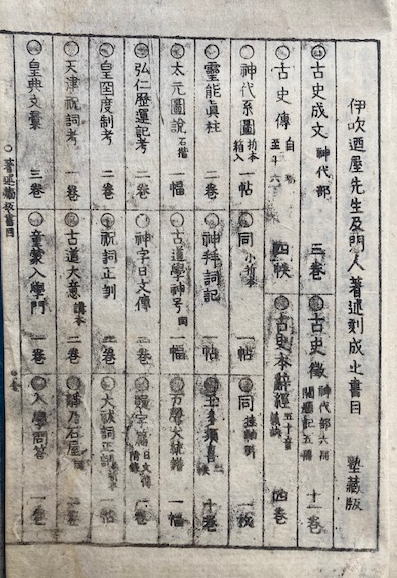 伊吹廼屋先生及門人著述刻成之書目 塾藏版
古史成文 神代部 三巻
古史徴 神代部六冊 開題記五冊 十一巻
古史傳 自一 至十六 四帙
古史本辭經 五十音義訣 四巻
神代系圖 折本箱入 一帖
同 小折本 一帖
同 掛軸 一枚
靈能眞柱 二巻
神拜詞記 一帖
玉多須喜 十巻
太元圖說 石摺 一幅
古道學神号 一幅
万聲大統譜 一幅
弘仁歷運記考 二巻
神字日文傳 二巻
疑字篇 日文傳附錄 一巻
皇国度制考 二巻
祝詞正訓 二巻
大祓詞正訓 一帖
天津祝詞考 一巻
古道大意 講本 二巻
志都乃石屋 同 二巻
皇典文彙 三巻
童蒙入學門 一巻
入學問答 一巻
著述刻板書目